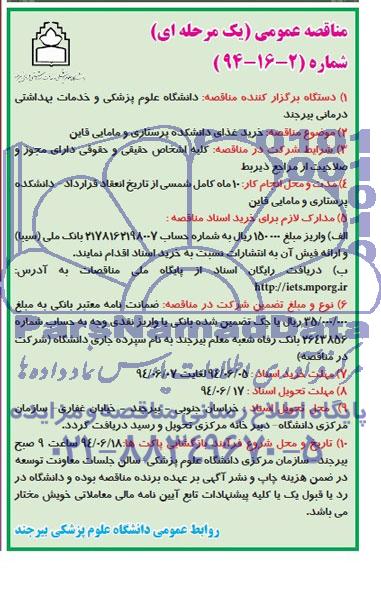 مناقصه عمومی (یک مرحله ای)
شماره (۲-۱۶-۹۴)
۱) دستگاه برگزار کننده مناقصه: دانشگاه علوم پزشکی و خدمات بهداشتی
درمانی بیرجند
۲) موضوع مناقصه: خرید غذای دانشکده پرستاری و مامایی قاین
۳) شرایط شرکت در مناقصه: کلیه اشخاص حقیقی و حقوقی دارای مجوز و
صلاحیت از مراجع ذیربط
۴) مدت و محل انجام کار: ۱۰ ماه کامل شمسی از تاریخ انعقاد قرارداد - دانشکده
پرستاری و مامایی قاین
۵) مدارک لازم برای خرید اسناد مناقصه :
الف) واریز مبلغ ۱۵۰۰۰۰ ریال به شماره حساب ۲۱۷۸۱۶۲۱۹۸۰۰۷ بانک ملی (سیبا)
و ارائه فیش آن به انتشارات نسبت به خرید اسناد اقدام نمایند.
ب) دریافت رایگان اسناد از پایگاه ملی مناقصات به آدرس:
http://iets.mporg.ir
۶) نوع و مبلغ تضمین شرکت در مناقصه: ضمانت نامه معتبر بانکی به مبلغ
۳۵/۰۰۰/۰۰۰ ریال یا چک تضمین شده بانکی یا واریز نقدی وجه به حساب شماره
۲۶۴۳۸۵۶ بانک رفاه شعبه معلم بیرجند به نام سپرده جاری دانشگاه (شرکت
در مناقصه)
۷) مهلت خرید اسناد : ۹۴/۰۶/۰۵ لغایت ۹۴/۰۶/۰۷
۸) مهلت تحویل اسناد : ۹۴/۰۶/۱۷
۹) محل تحویل اسناد : خراسان جنوبی - بیرجند - خیابان غفاری - سازمان
مرکزی دانشگاه - دبیر خانه مرکزی تحویل و رسید دریافت گردد.
۱۰) تاریخ و محل شروع فرآیند بازگشایی پاکت ها: ۹۴/۰۶/۱۸ ساعت ۹ صبح
بیرجند - سازمان مرکزی دانشگاه علوم پزشکی- سالن جلسات معاونت توسعه
در ضمن هزینه چاپ و نشر آگهی بر عهده برنده مناقصه بوده و دانشگاه در
رد یا قبول یک یا کلیه پیشنهادات تابع آیین نامه مالی معاملاتی خویش مختار
می باشد.
روابط عمومی دانشگاه علوم پزشکی بیرجند
ParsNamadData
۰۲۱-۸۸۳۴۹۶۷۰-۵